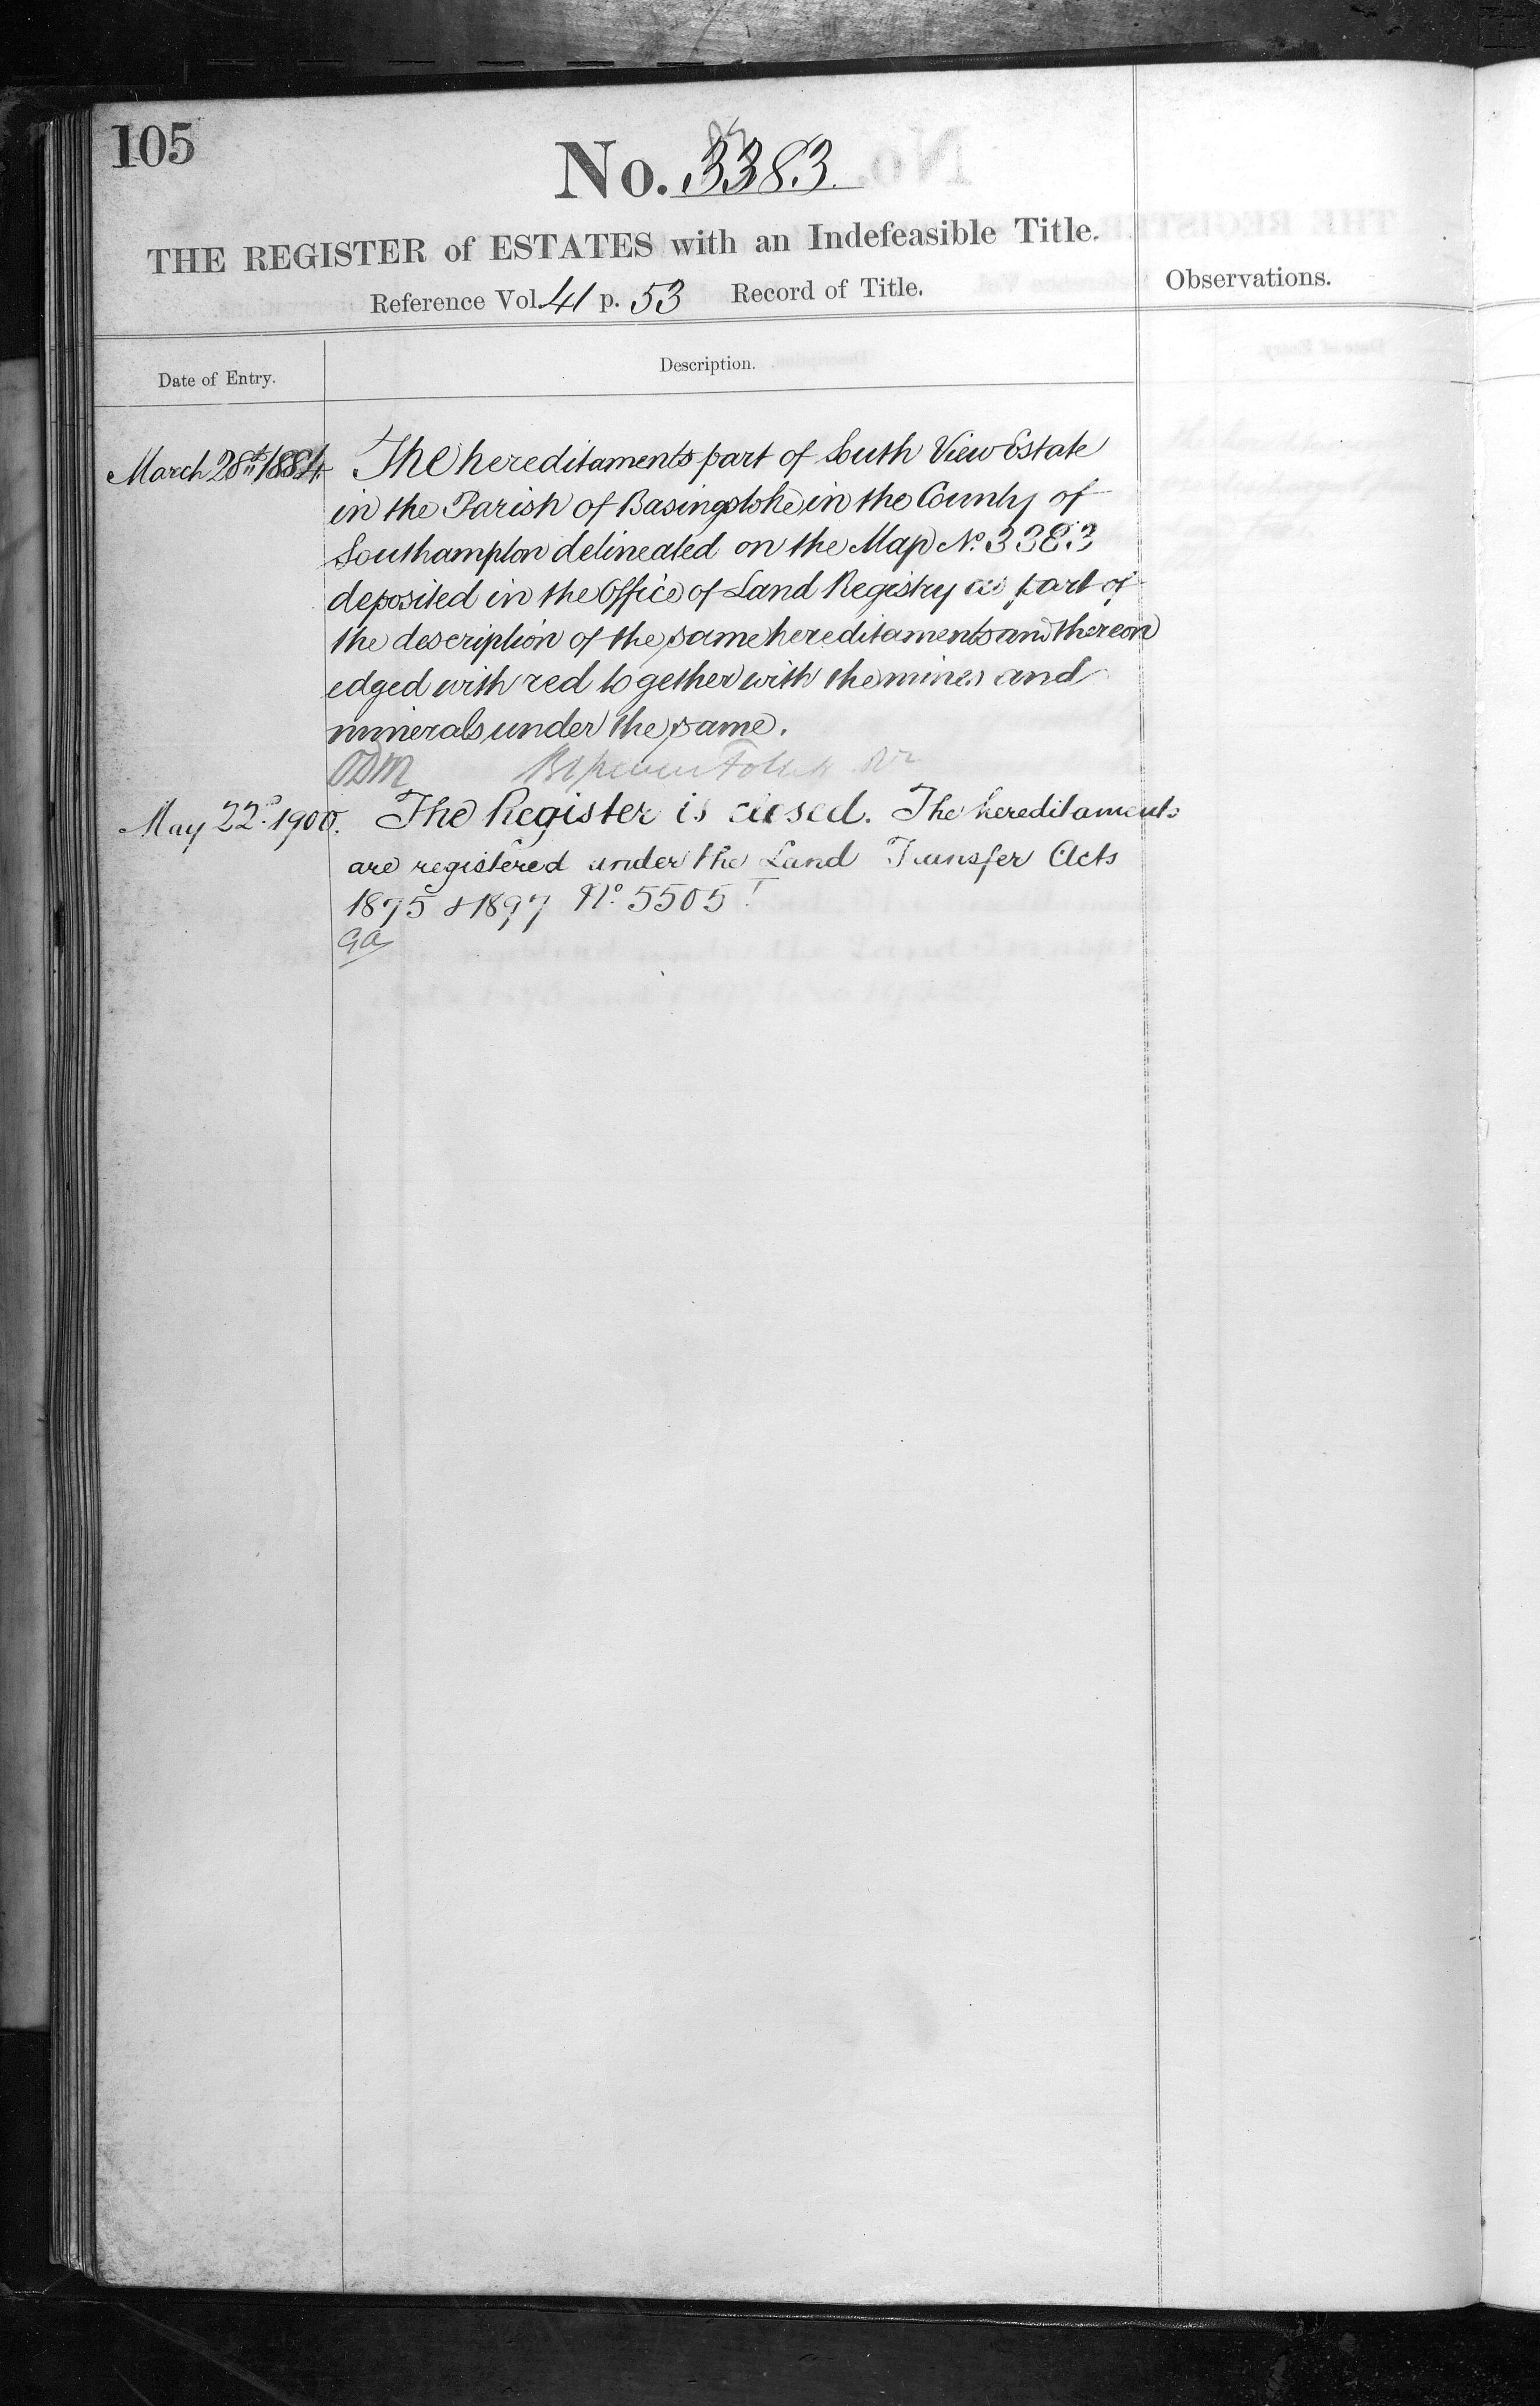 105
No. 3383.
THE REGISTER of ESTATES with an Indefeasible Title.
Reference Vol. 41 p. 53 Record of Title.
Observations.
Date of Entry.
Description.
March 28th 1884. The hereditaments part of South View Estate
in the Parish of Basingstoke in the County of
Southampton delineated on the Map No. 3383
deposited in the Office of Land Registry as part of
the description of the same hereditaments and thereon
edged with red together with the mines and
minerals under the same.
ODM
May 22d. 1900. The Register is closed. The hereditaments
are registered under the Land Transfer Acts
1875 & 1897 No. 5505